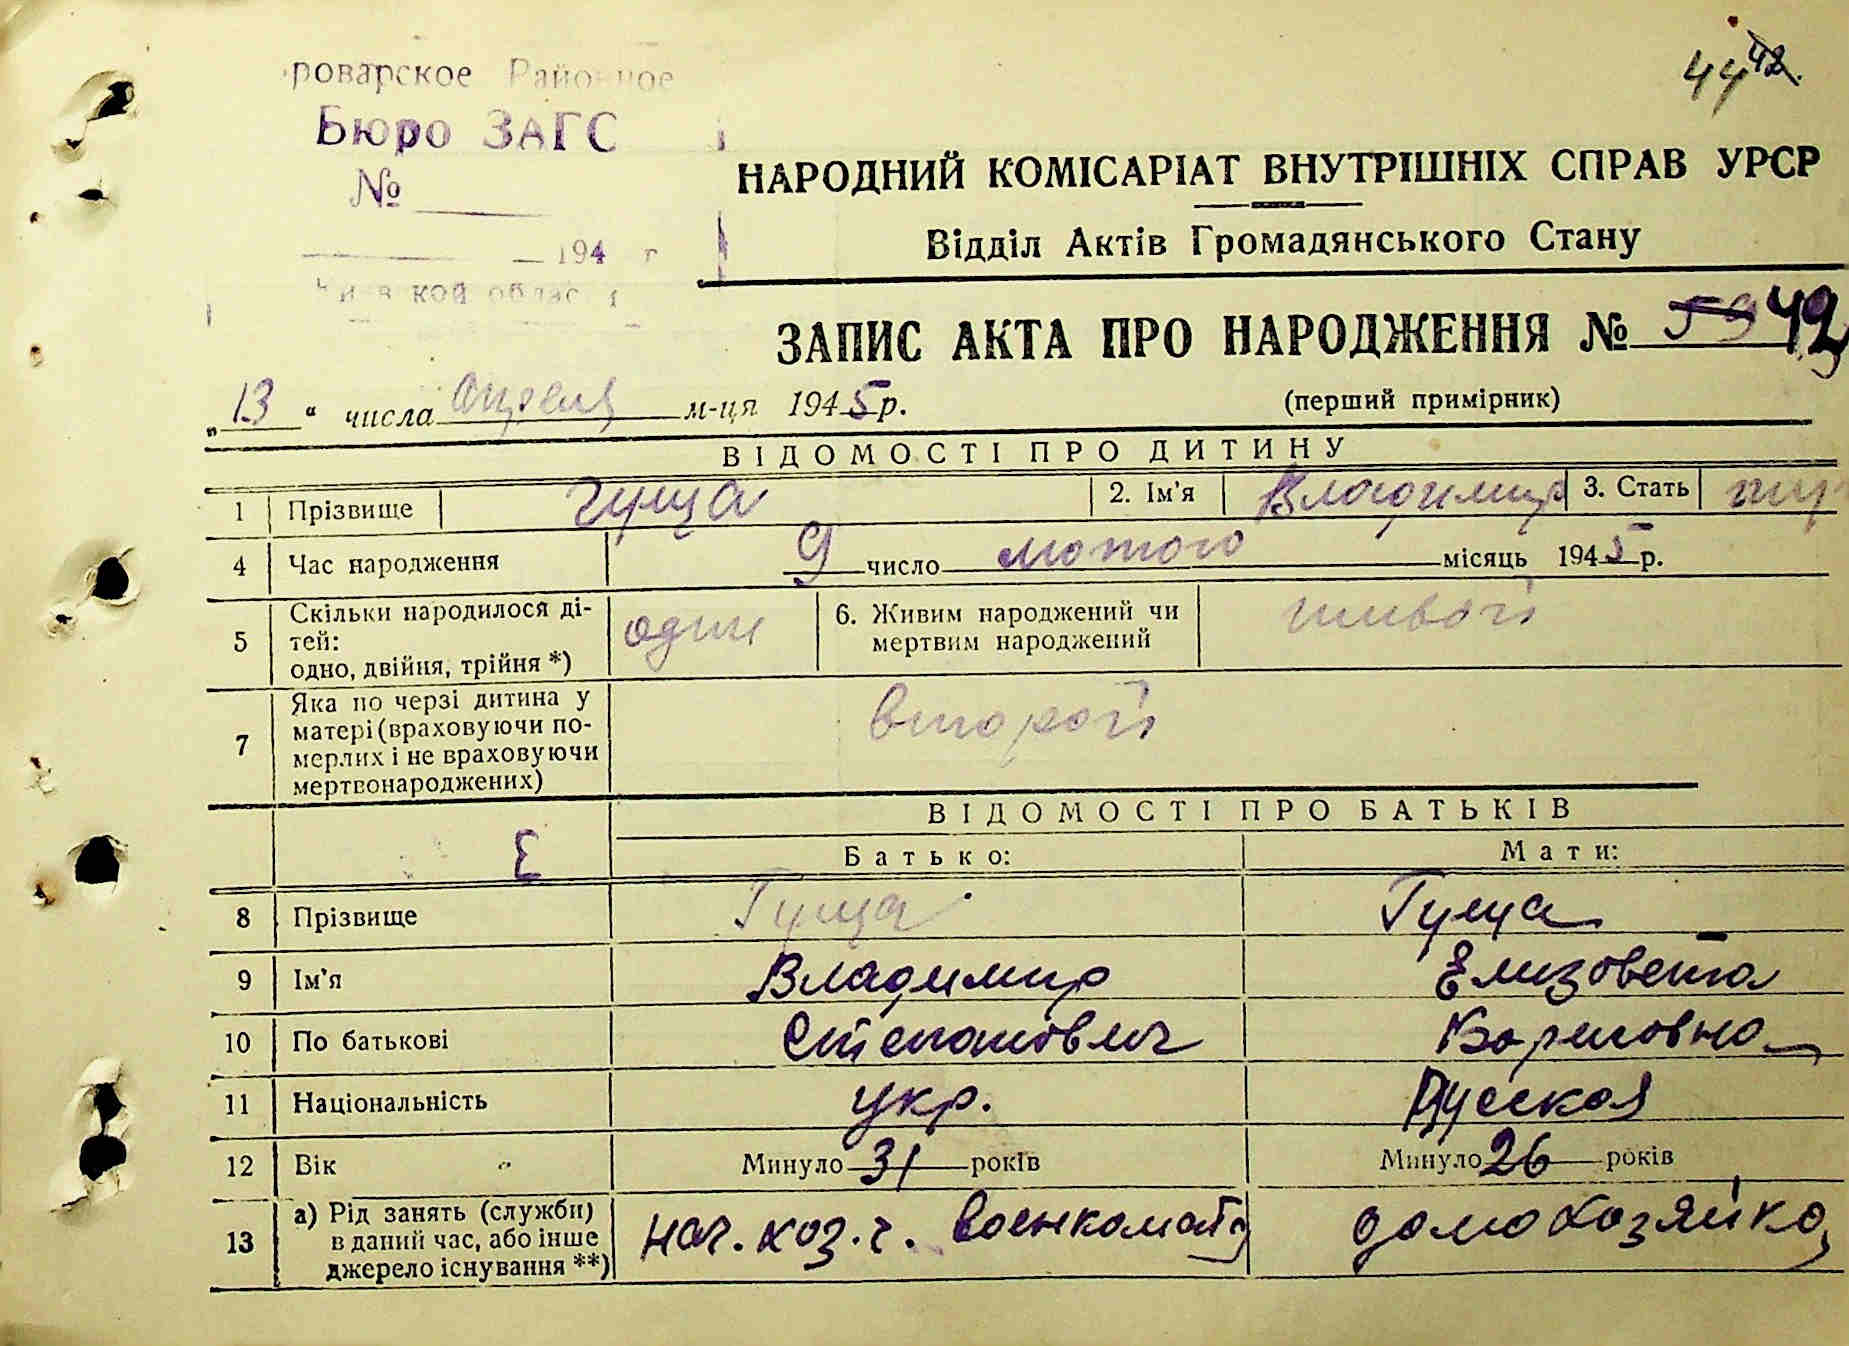 44 42.
роварское Районное
Бюро ЗАГС
№
194 г
НАРОДНИЙ КОМІСАРІАТ ВНУТРІШНІХ СПРАВ УРСР
Відділ Актів Громадянського Стану
ЗАПИС АКТА ПРО НАРОДЖЕННЯ № 59 42
„13“ числа Апреля м-ця 1945 р.
(перший примірник)
ВІДОМОСТІ ПРО ДИТИНУ
1 Прізвище Гуща 2. Ім'я Владимир 3. Стать
4 Час народження 9 число лютого місяць 1945 р.
5 Скільки народилося ді-
тей:
одно, двійня, трійня *) один
6. Живим народжений чи
мертвим народжений живой
7 Яка по черзі дитина у
матері (враховуючи по-
мерлих і не враховуючи
мертвонароджених) второй
ВІДОМОСТІ ПРО БАТЬКІВ
Батько: Мати:
8 Прізвище Гуща Гуща
9 Ім'я Владимир Елизовета
10 По батькові Степанович Борисовна
11 Національність укр. Русская
12 Вік Минуло 31 років Минуло 26 років
13 а) Рід занять (служби)
в даний час, або інше
джерело існування **) нач. хоз. ч. военкомата домохозяйка